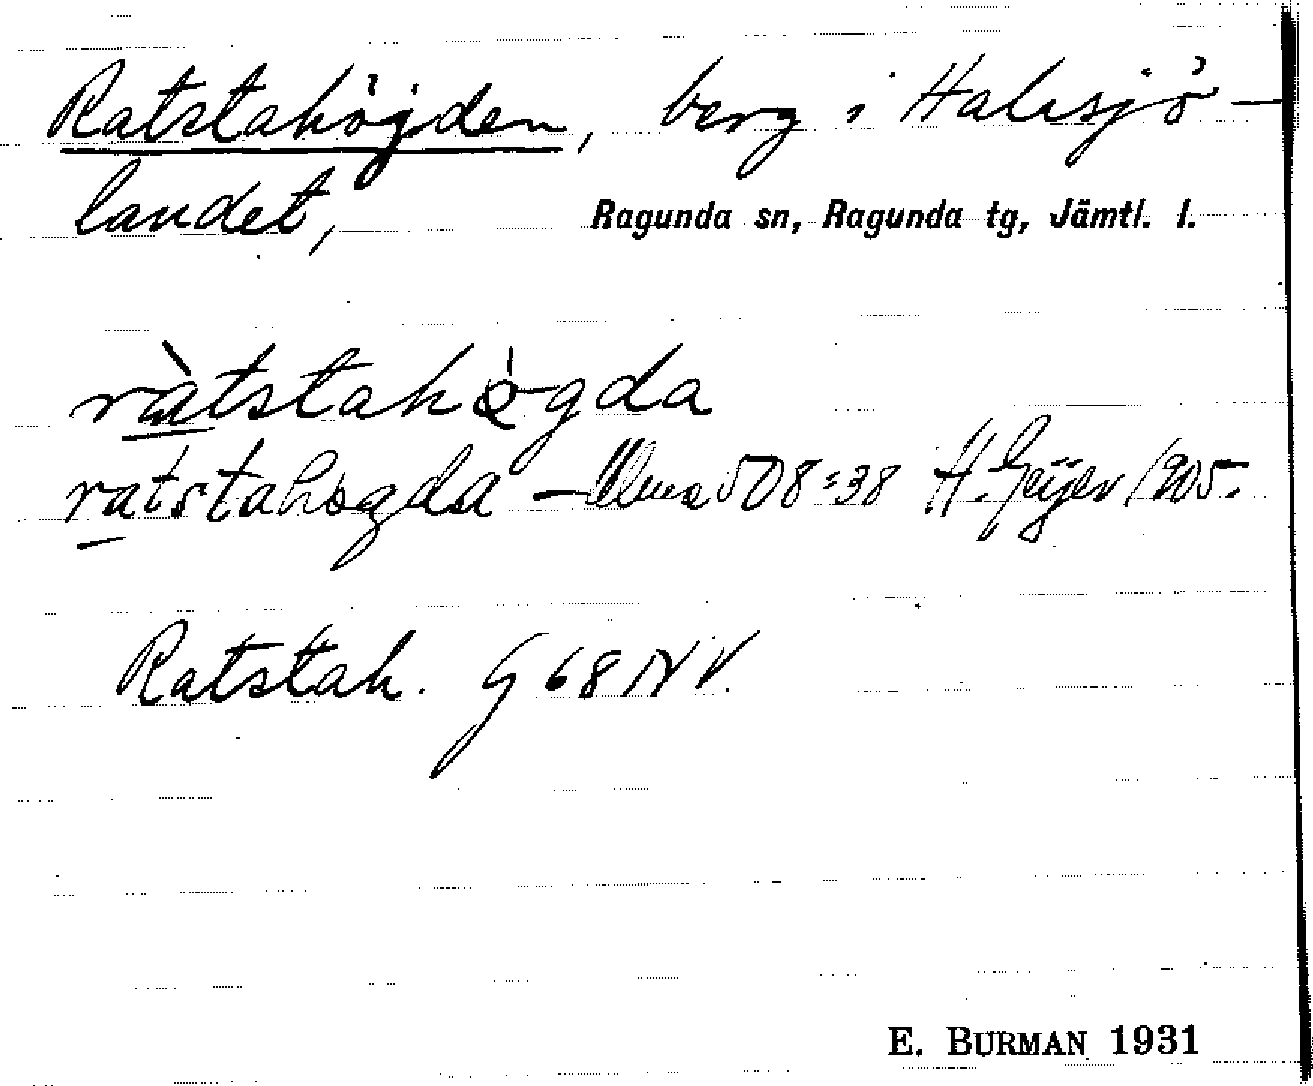 Ratstahöjden, berg i Halasjö-
landet,
Ragunda sn, Ragunda tg, Jämtl. l.
ràtstahògda
ratstahogda — Ulma 508:38 H. Geijer 1905.
Ratstah. G 68 NV.
E. BURMAN 1931